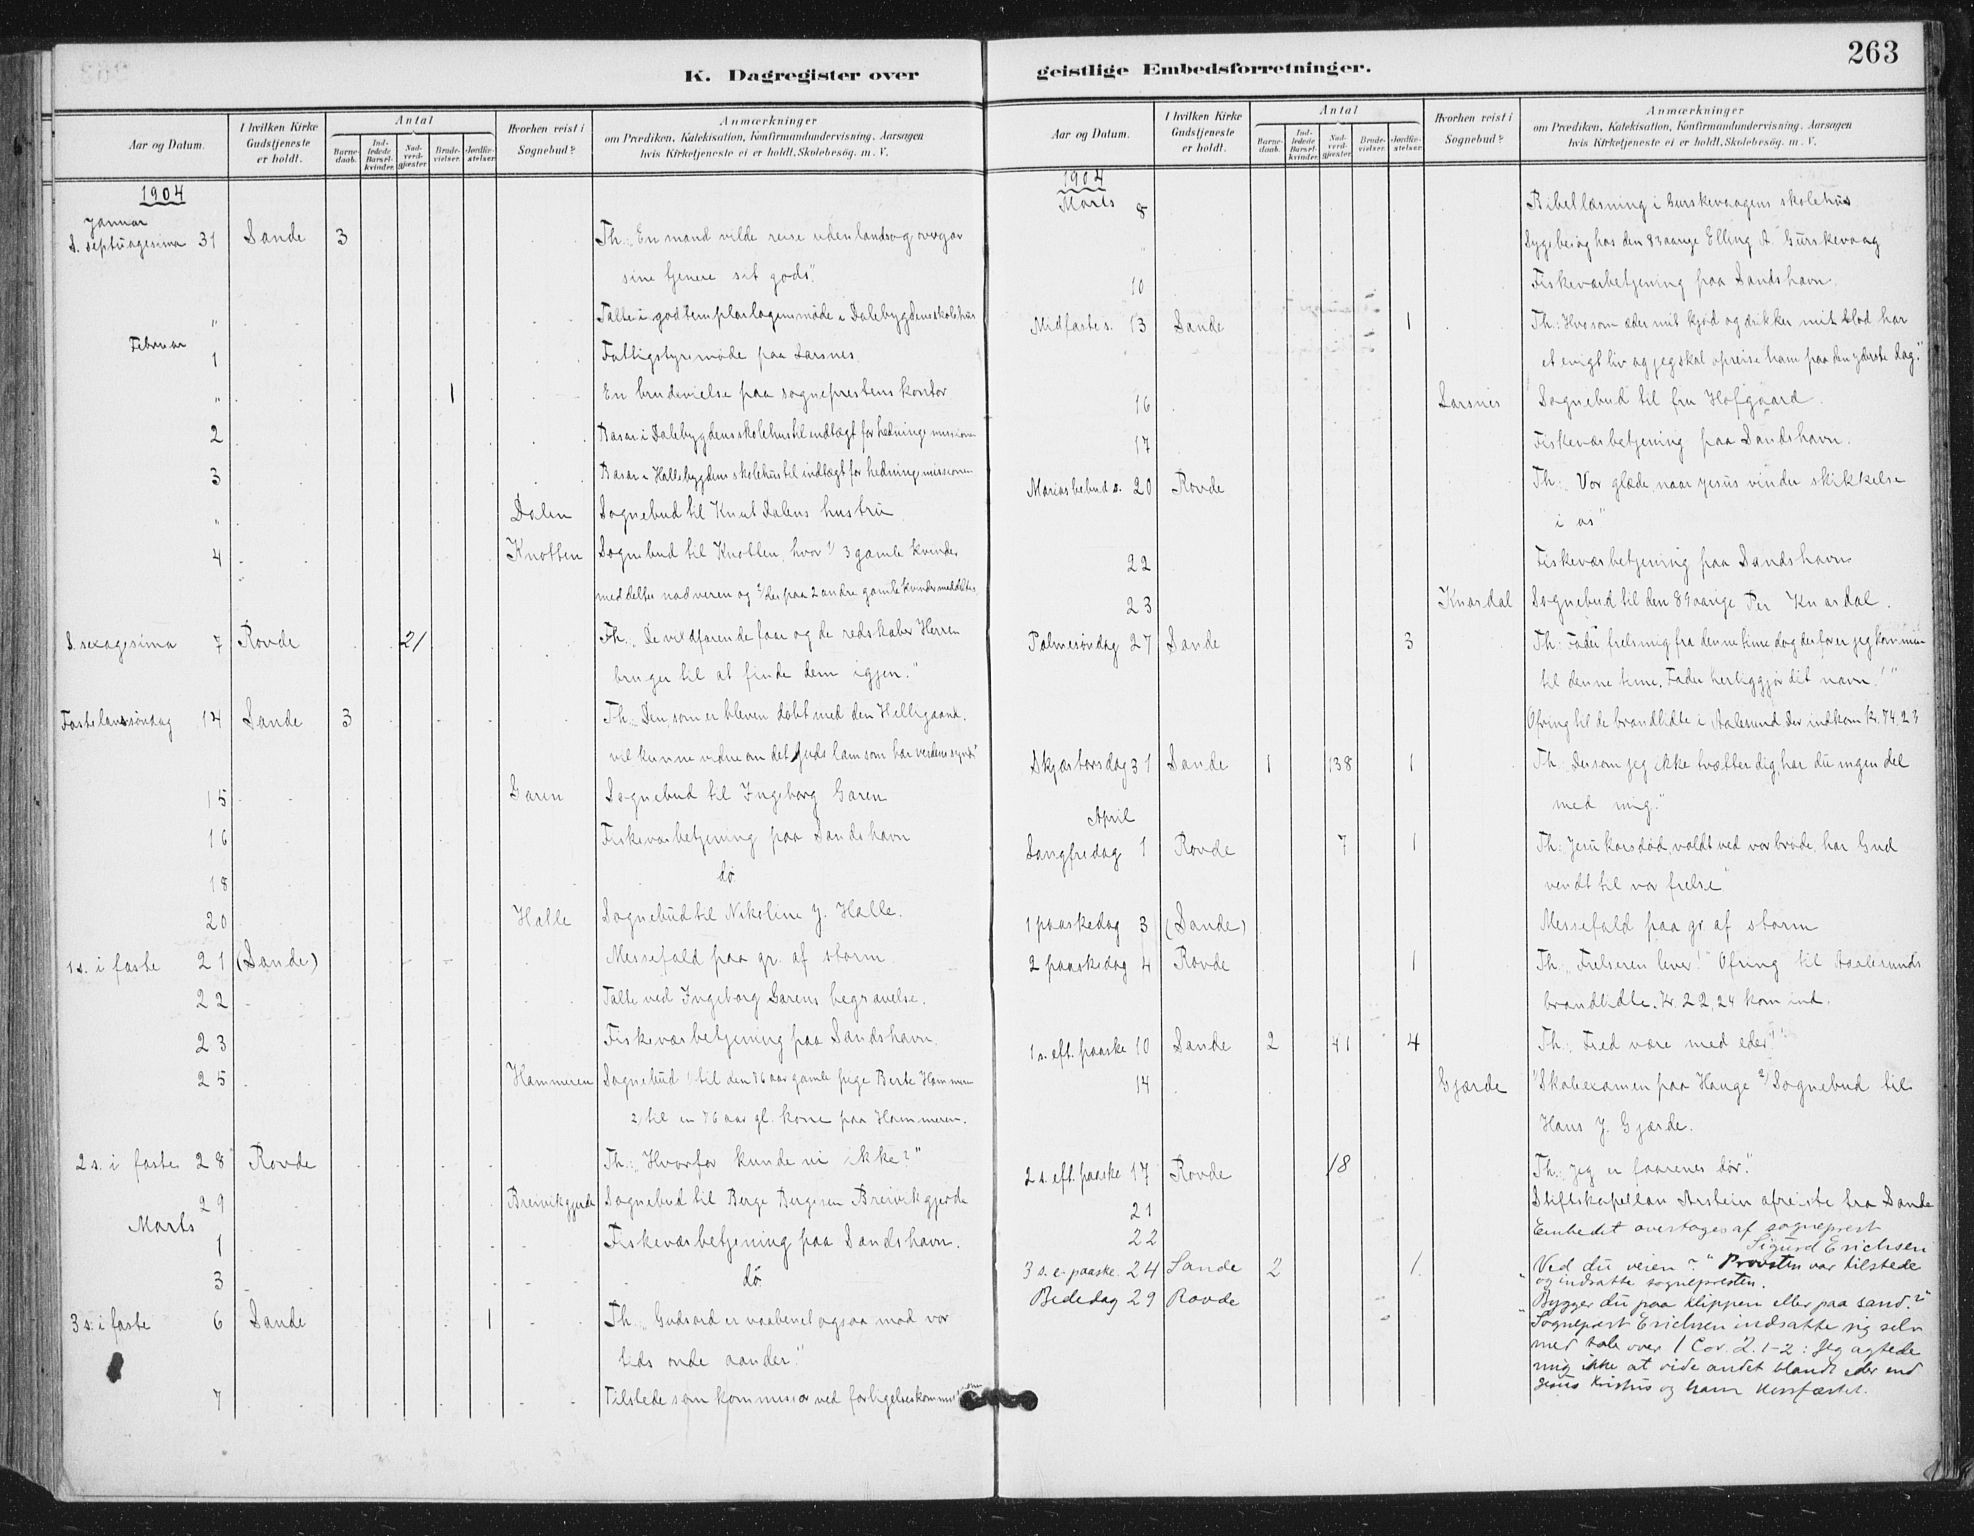 K. Dagregister over
Aar og Datum.
I hvilken Kirke Gudstjeneste er holdt.
Antal
Barne- daab.
Ind- ledede Barsel- kvinder.
Nad- verd- gjæster.
Brude- vielser.
Jordfæ- stelser.
Hvorhen reist i Sognebud?
Anmærkninger
om Prædiken, Katekisation, Konfirmandundervisning, Aarsagen
hvis Kirketjeneste ei er holdt, Skolebesøg. m. V.
1904
Januar
S. septuagesima 31 Sande 3 Th: „En mand vilde reise udenlands og overgav
sine tjenere sit gods".
" Talte i godtemplarlogens møde i Dalebygdens skolehus
Februar 1 Fattigstyremøde paa Larsnes
" 1 En brudevielse paa sogneprestens kontor
2 Basar i Dalebygdens skolehus til indtægt for hedningemissionen
3 Basar i Hallebygdens skolehus til indtægt for hedningemissionen
" Dalen Sognebud til Knut Dalens hustru
4 Knotten Sognebud til Knotten, hvor 1/ 3 gamle kvinder
meddeltes nadveren og 2/ des paa 2 andre gamle kvinder meddeltes
S. sexagesima 7 Rovde 21 Th: „De vildfarende faar og de redskaber Herren
bruger til at finde dem igjen."
Fastelavnssøndag 14 Sande 3 Th: „Den, som er bleven døbt med den Helligaand,
vil kunne vidne om det Guds lam som bar verdens synd"
15 Garen Sognebud til Ingeborg Garen
16 Fiskeværbetjening paa Sandshavn
18 do
20 Halle Sognebud til Nikoline J. Halle.
1 s. i faste 21 (Sande) Messefald paa gr. af storm.
22 Talte ved Ingeborg Garens begravelse.
23 Fiskeværbetjening paa Sandshavn.
25 Hammeren Sognebud 1/ til den 76 aar gamle pige Berte Hammeren
2/ til en 76 aar gl. kone paa Hammeren.
2 s. i faste 28 Rovde Th: „Hvorfor kunde vi ikke?"
29 Breivikgjerde Sognebud til Berge Bergesen Breivikgjerde
Marts
1 Fiskeværbetjening paa Sandshavn.
3 do
3 s. i faste 6 Sande 1 Th: „Gudsord er vaabenet ogsaa mod vor
tids onde aander."
7 Tilstede som kommissær ved forligelseskommissionen
263
geistlige Embedsforretninger.
Aar og Datum.
I hvilken Kirke Gudstjeneste er holdt.
Antal
Barne- daab.
Ind- ledede Barsel- kvinder.
Nad- verd- gjæster.
Brude- vielser.
Jordfæ- stelser.
Hvorhen reist i Sognebud?
Anmærkninger
om Prædiken, Katekisation, Konfirmandundervisning, Aarsagen
hvis Kirketjeneste ei er holdt, Skolebesøg. m. V.
1904
Marts 8 Bibellæsning i Gurskevaagens skolehus
" Sygebesøg hos den 83 aarige Elling A. Gurskevaag
10 Fiskeværbetjening paa Sandshavn.
Midfastes. 13 Sande 1 Th: Hvo som æder mit kjød og drikker mit blod har
et evigt liv og jeg skal opreise ham paa den yderste dag."
16 Larsnes Sognebud til fru Hofgaard.
17 Fiskeværbetjening paa Sandshavn.
Marias bebud. s. 20 Rovde Th: „Vor glæde, naar Jesus vinder skikkelse
i os"
22 Fiskeværbetjening paa Sandshavn
23 Knardal Sognebud til den 89 aarige Per Knardal.
Palmesøndag 27 Sande 3 Th: Fader frels mig fra denne time dog derfor er jeg kommen
til denne time. Fader herliggjør dit navn!"
Ofring til de brandlidte i Aalesund der indkom Kr. 74.23
Skjærtorsdag 31 Sande 1 138 1 Th: Dersom jeg ikke tvætter dig, har du ingen del
med mig."
April
Langfredag 1 Rovde 7 1 Th: Jesu korsdød, voldt ved vor brøde, har Gud
vendt til vor frelse"
1 paaskedag 3 (Sande) Messefald paa gr. af storm
2 paaskedag 4 Rovde 1 Th: „Frelseren lever!" Ofring til Aalesunds
brandlidte. Kr. 22,24 kom ind.
1 s. eft. paaske 10 Sande 2 41 4 Th: „Fred være med eder!"
14 Gjærde 1/ Skoleexamen paa Hauge 2/ Sognebud til
Hans J. Gjærde.
2 s. eft. paaske 17 Rovde 18 Th: Jeg er faarenes dør."
21 Stiftskapellan Arstein afreiste fra Sande
22 Embedet overtoges af sogneprest
Sigurd Erichsen
3 s. e. paaske. 24 Sande 2 1 „Ved du veien?" Provsten var tilstede
og indsatte sognepresten.
Bededag 29 Rovde „Bygger du paa klippen eller paa sand?"
Sogneprest Erichsen indsatte sig selv
med tale over 1 Cor. 2. 1-2: Jeg agtede
mig ikke at vide andet blandt eder end
Jesus Kristus og ham korsfæstet.